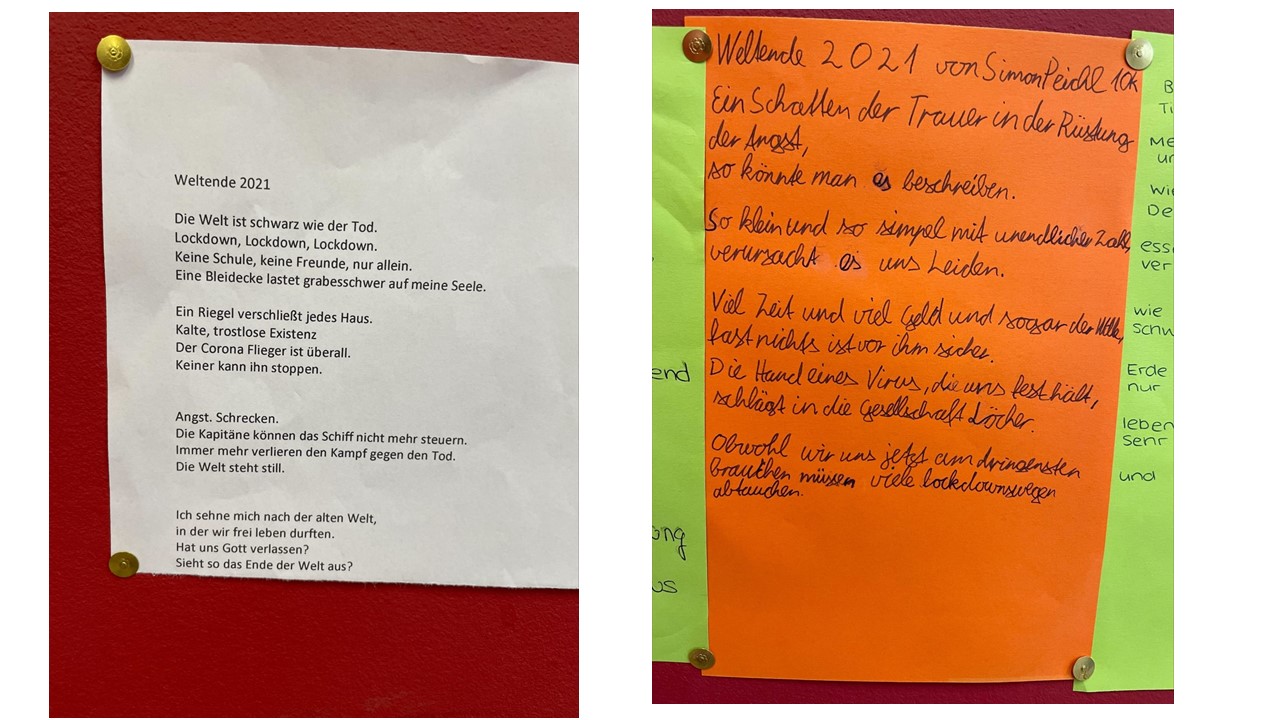 Weltende 2021
Die Welt ist schwarz wie der Tod.
Lockdown, Lockdown, Lockdown.
Keine Schule, keine Freunde, nur allein.
Eine Bleidecke lastet grabesschwer auf meine Seele.
Ein Riegel verschließt jedes Haus.
Kalte, trostlose Existenz
Der Corona Flieger ist überall.
Keiner kann ihn stoppen.
Angst. Schrecken.
Die Kapitäne können das Schiff nicht mehr steuern.
Immer mehr verlieren den Kampf gegen den Tod.
Die Welt steht still.
Ich sehne mich nach der alten Welt,
in der wir frei leben durften.
Hat uns Gott verlassen?
Sieht so das Ende der Welt aus?
Weltende 2021 von Simon Peichl 10k
Ein Schatten der Trauer in der Rüstung
der Angst,
so könnte man es beschreiben.
So klein und so simpel mit unendlicher Zahl,
verursacht es uns Leiden.
Viel Zeit und viel Geld und sogar der
fast nichts ist vor ihm sicher.
Die Hand eines Virus, die uns fest hält,
schlägt in die Gesellschaft Löcher.
Obwohl wir uns jetzt am dringensten
brauchen müssen viele lockdownswegen
abtauchen.
end
ong
us
B
Ti
Me
ur
Wie
De
ess
ver
wie
schw
Erde
nur
leben
senr
und